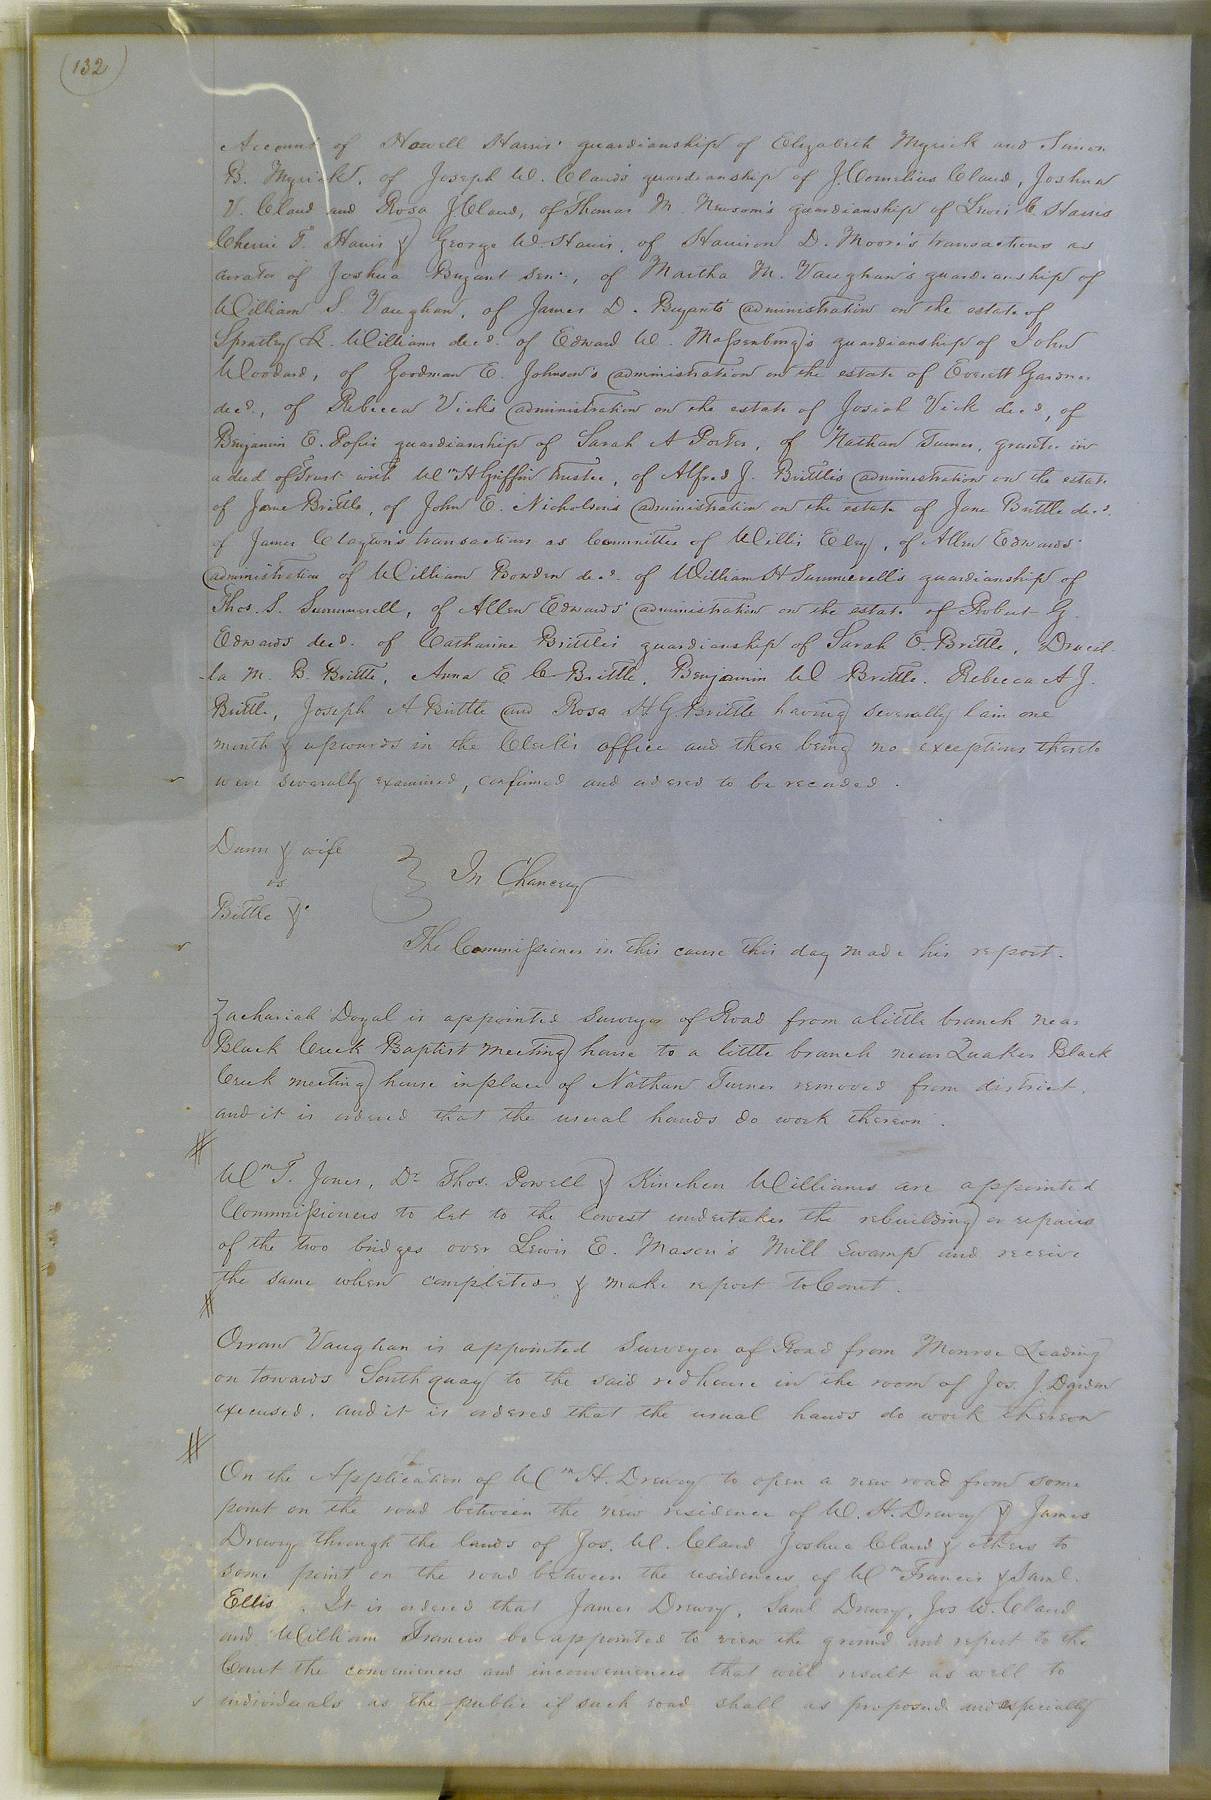 132
Account of Howell Harris' guardianship of Elizabeth Myrick and Simon
B. Myrick, of Joseph W. Claud's guardianship of J. Cornelius Claud, Joshua
V. Claud and Rosa J. Claud, of Thomas M. Newsom's guardianship of Lewis E Harris
Cherrie T. Harris & George W. Harris, of Harrison D. Moore's transactions as
curator of Joshua Bryant Senr., of Martha M. Vaughan's guardianship of
William S. Vaughan, of James D. Bryant's administration on the estate of
Spratley R. Williams decd. of Edward W. Massenburg's guardianship of John
Woodard, of Goodman E. Johnson's administration on the estate of Everett Gardner
decd., of Rebecca Vick's administration on the estate of Josiah Vick decd, of
Benjamin E. Pope's guardianship of Sarah A Porter, of Nathan Turner, grantor in
a deed of Trust with Wm H Griffin trustee, of Alfred J. Brittle's administration on the estate
of Jane Brittle, of John E. Nicholson's administration on the estate of Jane Brittle decd.
of James Clayton's transactions as Committee of Willis Eley, of Allen Edwards'
administration of William Bowden decd. of William H Summerell's guardianship of
Thos. S. Summerell, of Allen Edwards' administration on the estate of Robert G.
Edwards decd. of Catharine Brittle's guardianship of Sarah E. Brittle, Drucil-
-la M. B. Brittle, Anna E C Brittle, Benjamin W Brittle, Rebecca A J.
Brittle, Joseph A Brittle and Rosa H G Brittle having severally lain one
month & upwards in the Clerk's office and there being no exceptions thereto
were severally examined, confirmed and ordered to be recorded.
Dunn & wife
vs In Chancery
Bittle &c
The Commissioner in this cause this day made his report.
Zachariah Doyal is appointed Surveyor of Road from a little branch near
Black Creek Baptist meeting house to a little branch near Quaker Black
Creek meeting house in place of Nathan Turner removed from district,
and it is ordered that the usual hands do work thereon.
#
Wm T. Jones, Dr Thos. Powell & Kinchen Williams are appointed
Commissioners to let to the lowest undertaker the rebuilding or repairs
of the two bridges over Lewis E. Mason's Mill Swamp and receive
the same when completed, & make report to Court.
#
Orran Vaughan is appointed Surveyor of Road from Monroe Leading
on towards South quay to the said redhouse in the room of Jos. J. Darden
excused, and it is ordered that the usual hands do work thereon
#
On the Application of Wm H. Drewry to open a new road from some
point on the road between the new residence of W. H. Drewry & James
Drewry through the lands of Jos. W. Claud Joshua Claud & others to
some point on the road between the residences of Wm Francis & Saml.
Ellis. It is ordered that James Drewry, Saml Drewry, Jos W. Claud
and William Francis be appointed to view the ground and report to the
Court the conveniences and inconveniences that will result as well to
individuals as the public if such road shall as proposed and especially